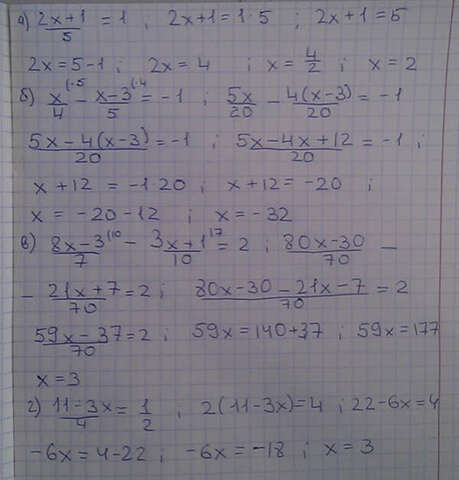 а) (2x+1)/5 = 1 ; 2x+1=1·5 ; 2x+1=5
2x=5-1 ; 2x=4 ; x=4/2 ; x=2
б) x/4 (·5 - (x-3)/5 (·4 = -1 ; 5x/20 - 4(x-3)/20 = -1
(5x-4(x-3))/20 = -1 ; (5x-4x+12)/20 = -1 ;
x+12 = -1·20 ; x+12 = -20 ;
x = -20-12 ; x = -32
в) (8x-3)/7 (10 - (3x+1)/10 (7 = 2 ; (80x-30)/70 -
- (21x+7)/70 = 2 ; (80x-30-21x-7)/70 = 2
(59x-37)/70 = 2 ; 59x = 140+37 ; 59x = 177
x=3
г) (11-3x)/4 = 1/2 ; 2(11-3x)=4 ; 22-6x=4
-6x=4-22 ; -6x=-18 ; x=3